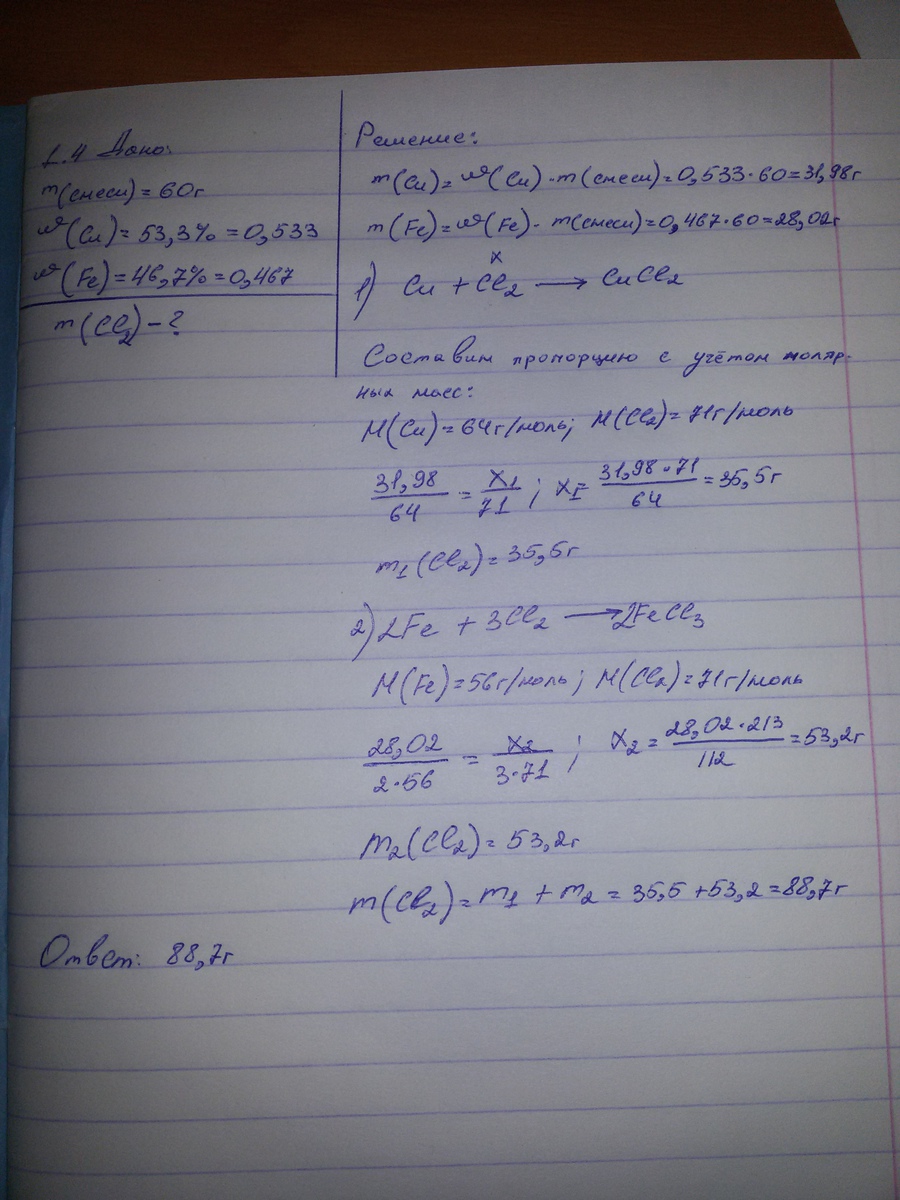 1.4 Дано:
m(смеси) = 60г
w(Cu) = 53,3% = 0,533
w(Fe) = 46,7% = 0,467
m(Cl2) - ?
Решение:
m(Cu) = w(Cu) · m(смеси) = 0,533 · 60 = 31,98г
m(Fe) = w(Fe) · m(смеси) = 0,467 · 60 = 28,02г
x
1) Cu + Cl2 → CuCl2
Составим пропорцию с учётом моляр-
ных масс:
M(Cu) = 64г/моль; M(Cl2) = 71г/моль
31,98/64 = x1/71 ; x1 = 31,98 · 71/64 = 35,5г
m1(Cl2) = 35,5г
2) 2Fe + 3Cl2 → 2FeCl3
M(Fe) = 56г/моль; M(Cl2) = 71г/моль
28,02/2·56 = x2/3·71 ; x2 = 28,02 · 213/112 = 53,2г
m2(Cl2) = 53,2г
m(Cl2) = m1 + m2 = 35,5 + 53,2 = 88,7г
Ответ: 88,7г